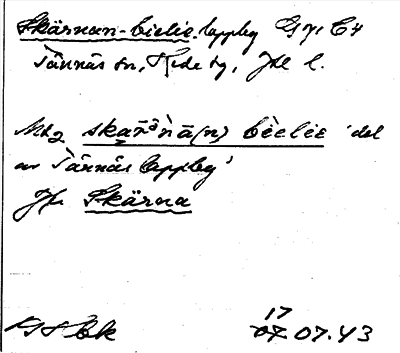 Skärnan-bielie lappbg G 71 C4
Tännäs sn, Hede tg, Jtl l.
skarᵒnä(n) bèelee 'del
av Tännäs lappbg'
Jfr Skärna
17
07.07.43